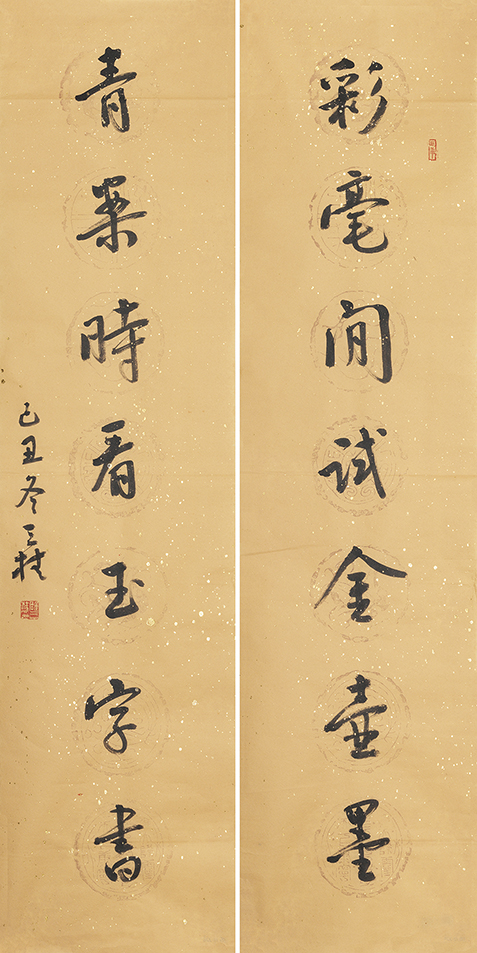 彩毫閒試金壺墨
青案時看玉字書
己丑冬